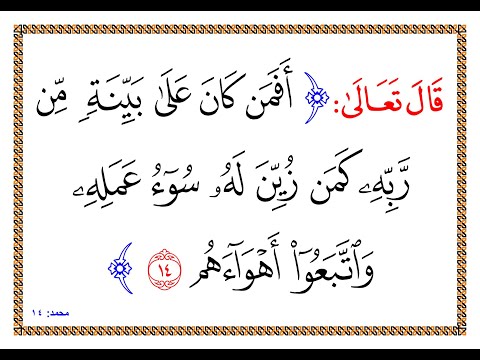 قَالَ تَعَالَىٰ: ﴿ أَفَمَن كَانَ عَلَىٰ بَيِّنَةٍ مِّن
رَّبِّهِۦ كَمَن زُيِّنَ لَهُۥ سُوٓءُ عَمَلِهِۦ
وَٱتَّبَعُوٓا۟ أَهْوَآءَهُم ١٤ ﴾
محمد: ١٤